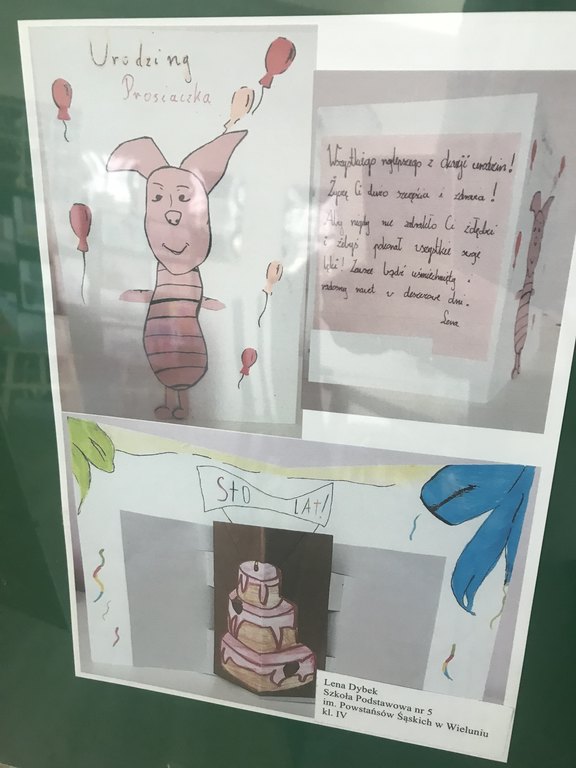 Urodziny
Prosiaczka
Wszystkiego najlepszego z okazji urodzin!
Życzę Ci dużo szczęścia i zdrowia!
Aby nigdy nie zabrakło Ci żołędzi
i żebyś pokonał wszystkie swoje
lęki! Zawsze bądź uśmiechnięty i
radosny nawet w deszczowe dni.
Lena
STO LAT!
Lena Dybek
Szkoła Podstawowa nr 5
im. Powstańsów Śąskich w Wieluniu
kl. IV